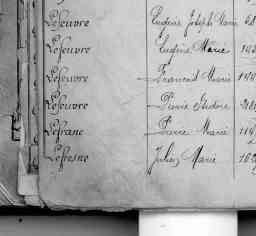 Lefeuvre Eugène Joseph Marie
Lefeuvre Eugène Marie
Lefeuvre François Marie
Lefeuvre Pierre Isidore
Lefranc Pierre Marie
Lefresne Jules Marie